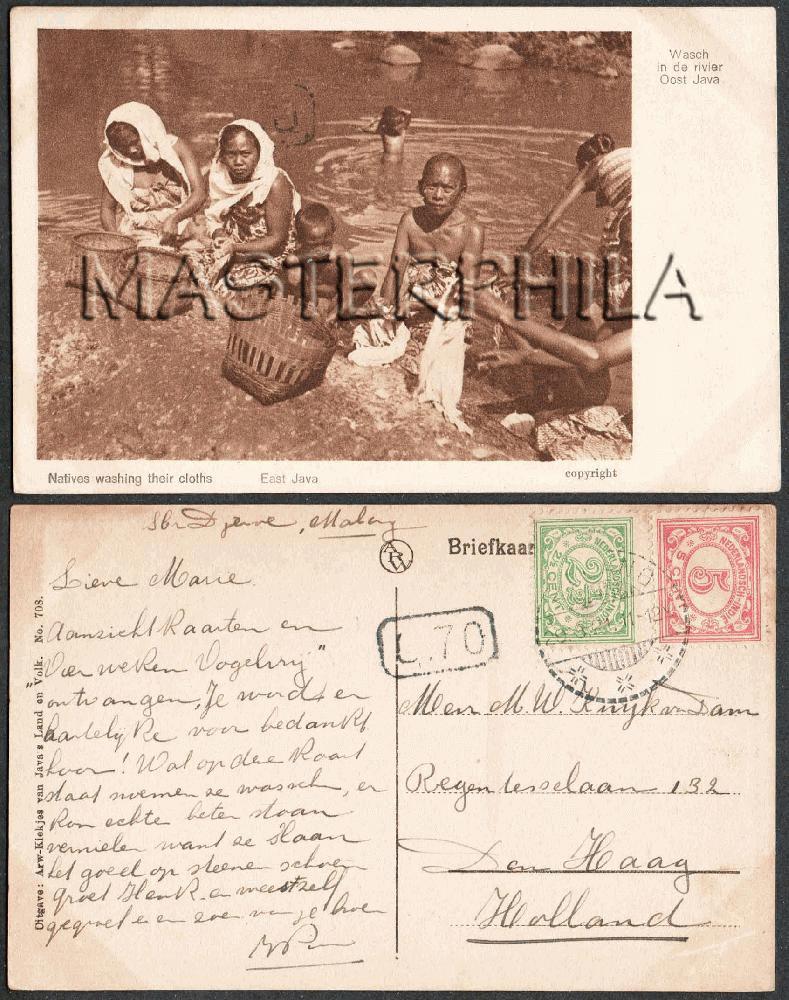 Wasch
in de rivier
Oost Java
MASTERPHILA
Natives washing their cloths East Java copyright
Malang
Briefkaar
NEDERLANDSCH-INDIE
2½ CENT
NEDERLANDSCH-INDIE
5 CENT
L.70
Uitgave: Arw-Kiekjes van Java's Land en Volk. No. 708.
Lieve Marie.
Aanzichtkaarten en
"Vier weken Vogelvrij"
ontvangen, Je wordt er
hartelijke voor bedankt
hoor! Wat op deze kaart
staat noemen ze wasschen, er
kon echte beter staan
vernielen want ze slaan
het goed op steenen schoon
groet Henk en weest zelf
gegroet en een van je broer
Mevr M. W. Kuijk van Dam
Regentesselaan 132
Den Haag
Holland